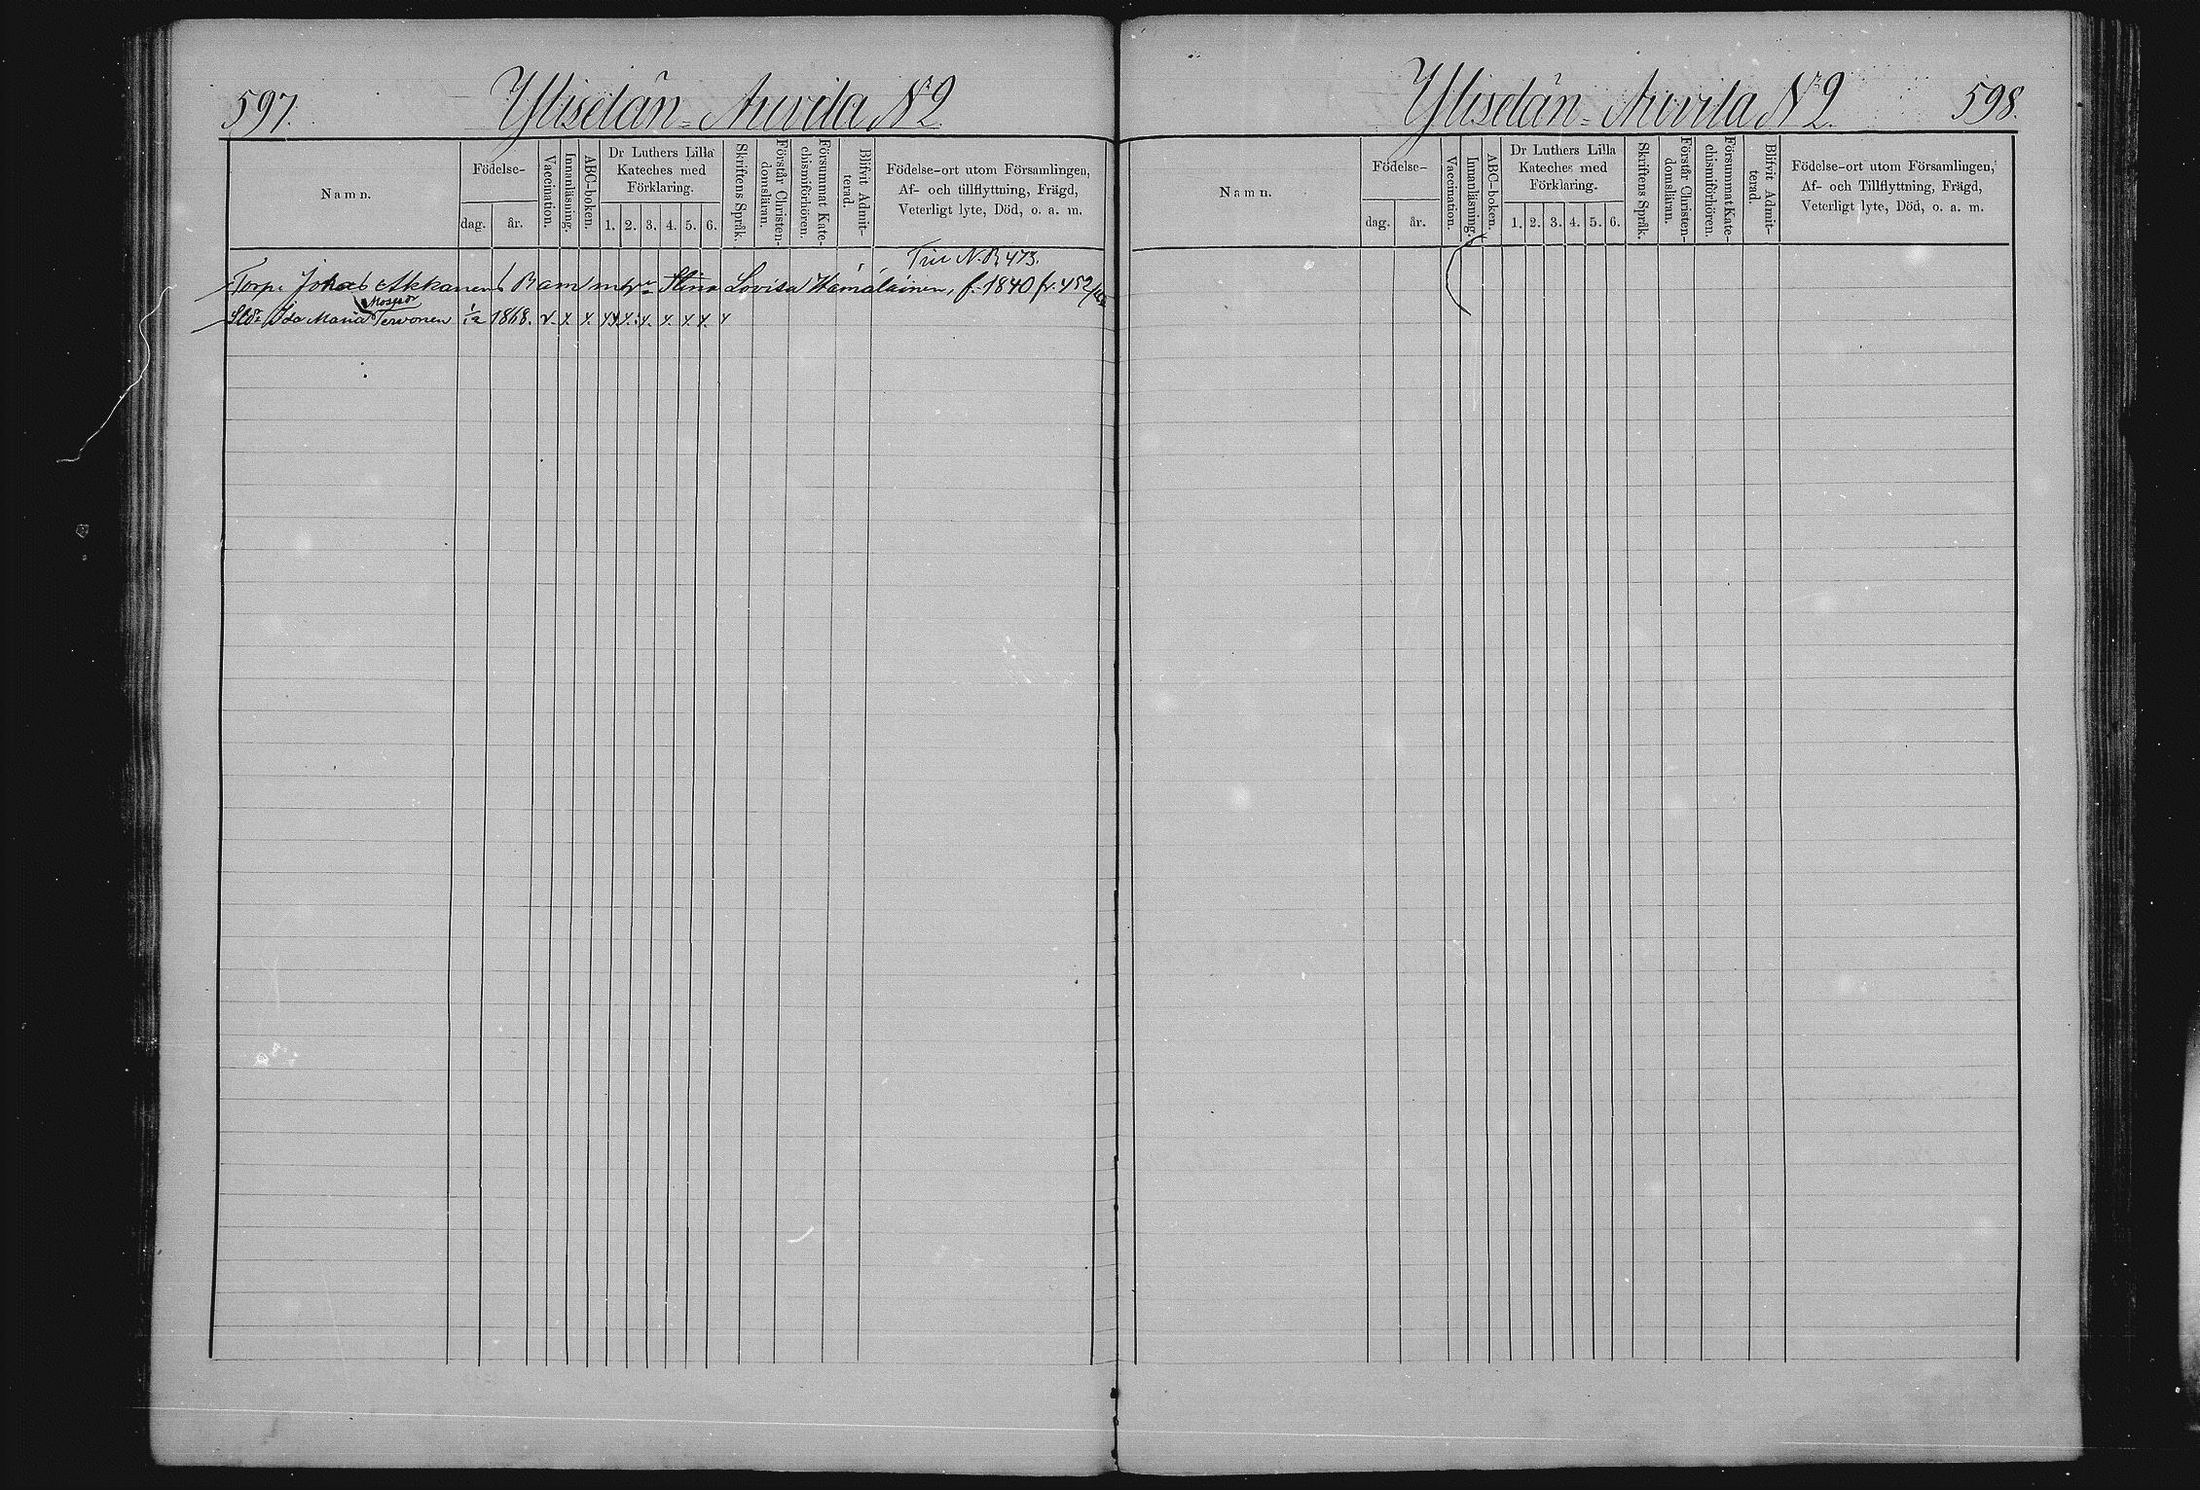 597.
Yliselän Anvila N:o 2
Namn.
Födelse-
dag. år.
Vaccination.
Innanläsning.
ABC-boken.
Dr Luthers Lilla
Kateches med
Förklaring.
1. 2. 3. 4. 5. 6.
Skriftens Språk.
Förstår Christen-
domsläran.
Försummat Kate-
chismiförhören.
Blifvit Admit-
terad.
Födelse-ort utom Församlingen,
Af- och tillflyttning, Frägd,
Veterligt lyte, Död, o. a. m.
N.B. 473.
Torp. Johan Akkanen Stina Lovisa Hämäläinen, f. 1840 fr. 452
Ida Maria Tervonen 1/12 1868. v. x x x x x x x x x
Yliselän Anvila N:o 2.
598.
Namn.
Födelse-
dag. år.
Vaccination.
Innanläsning.
ABC-boken.
Dr Luthers Lilla
Kateches med
Förklaring.
1. 2. 3. 4. 5. 6.
Skriftens Språk.
Förstår Christen-
domsläran.
Försummat Kate-
chismiförhören.
Blifvit Admit-
terad.
Födelse-ort utom Församlingen,
Af- och Tillflyttning, Frägd,
Veterligt lyte, Död, o. a. m.